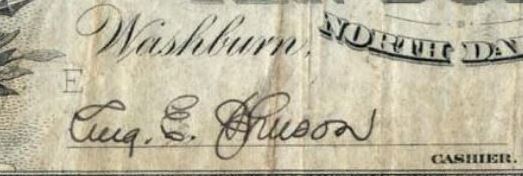 Washburn, NORTH DA
E
Aug. E. Johnson
CASHIER.